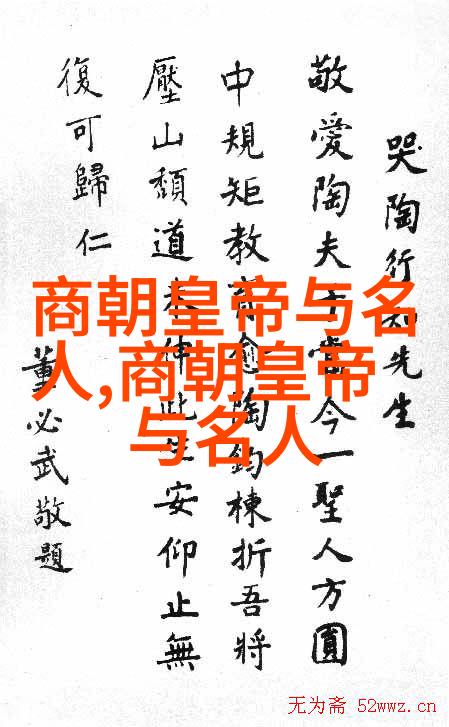 哭陶行知先生
敬愛陶夫子當今一聖人方圓
中規矩教育愈陶鈞棟折吾將
壓山頹道未伸此生安仰止無
復可歸仁
董必武敬題
商朝皇帝与名
人,商朝皇帝
与名人
无为斋 52wwz.cn